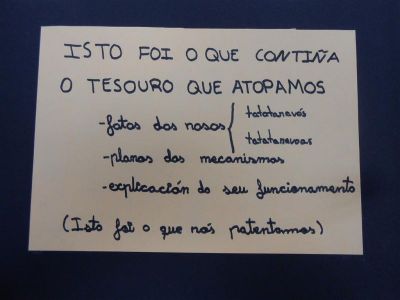 ISTO FOI O QUE CONTIÑA
O TESOURO QUE ATOPAMOS
-fotos dos nosos { tatataravós
tatataravoas
-planos dos mecanismos
-explicación do seu funcionamento
(Isto foi o que nós patentamos)